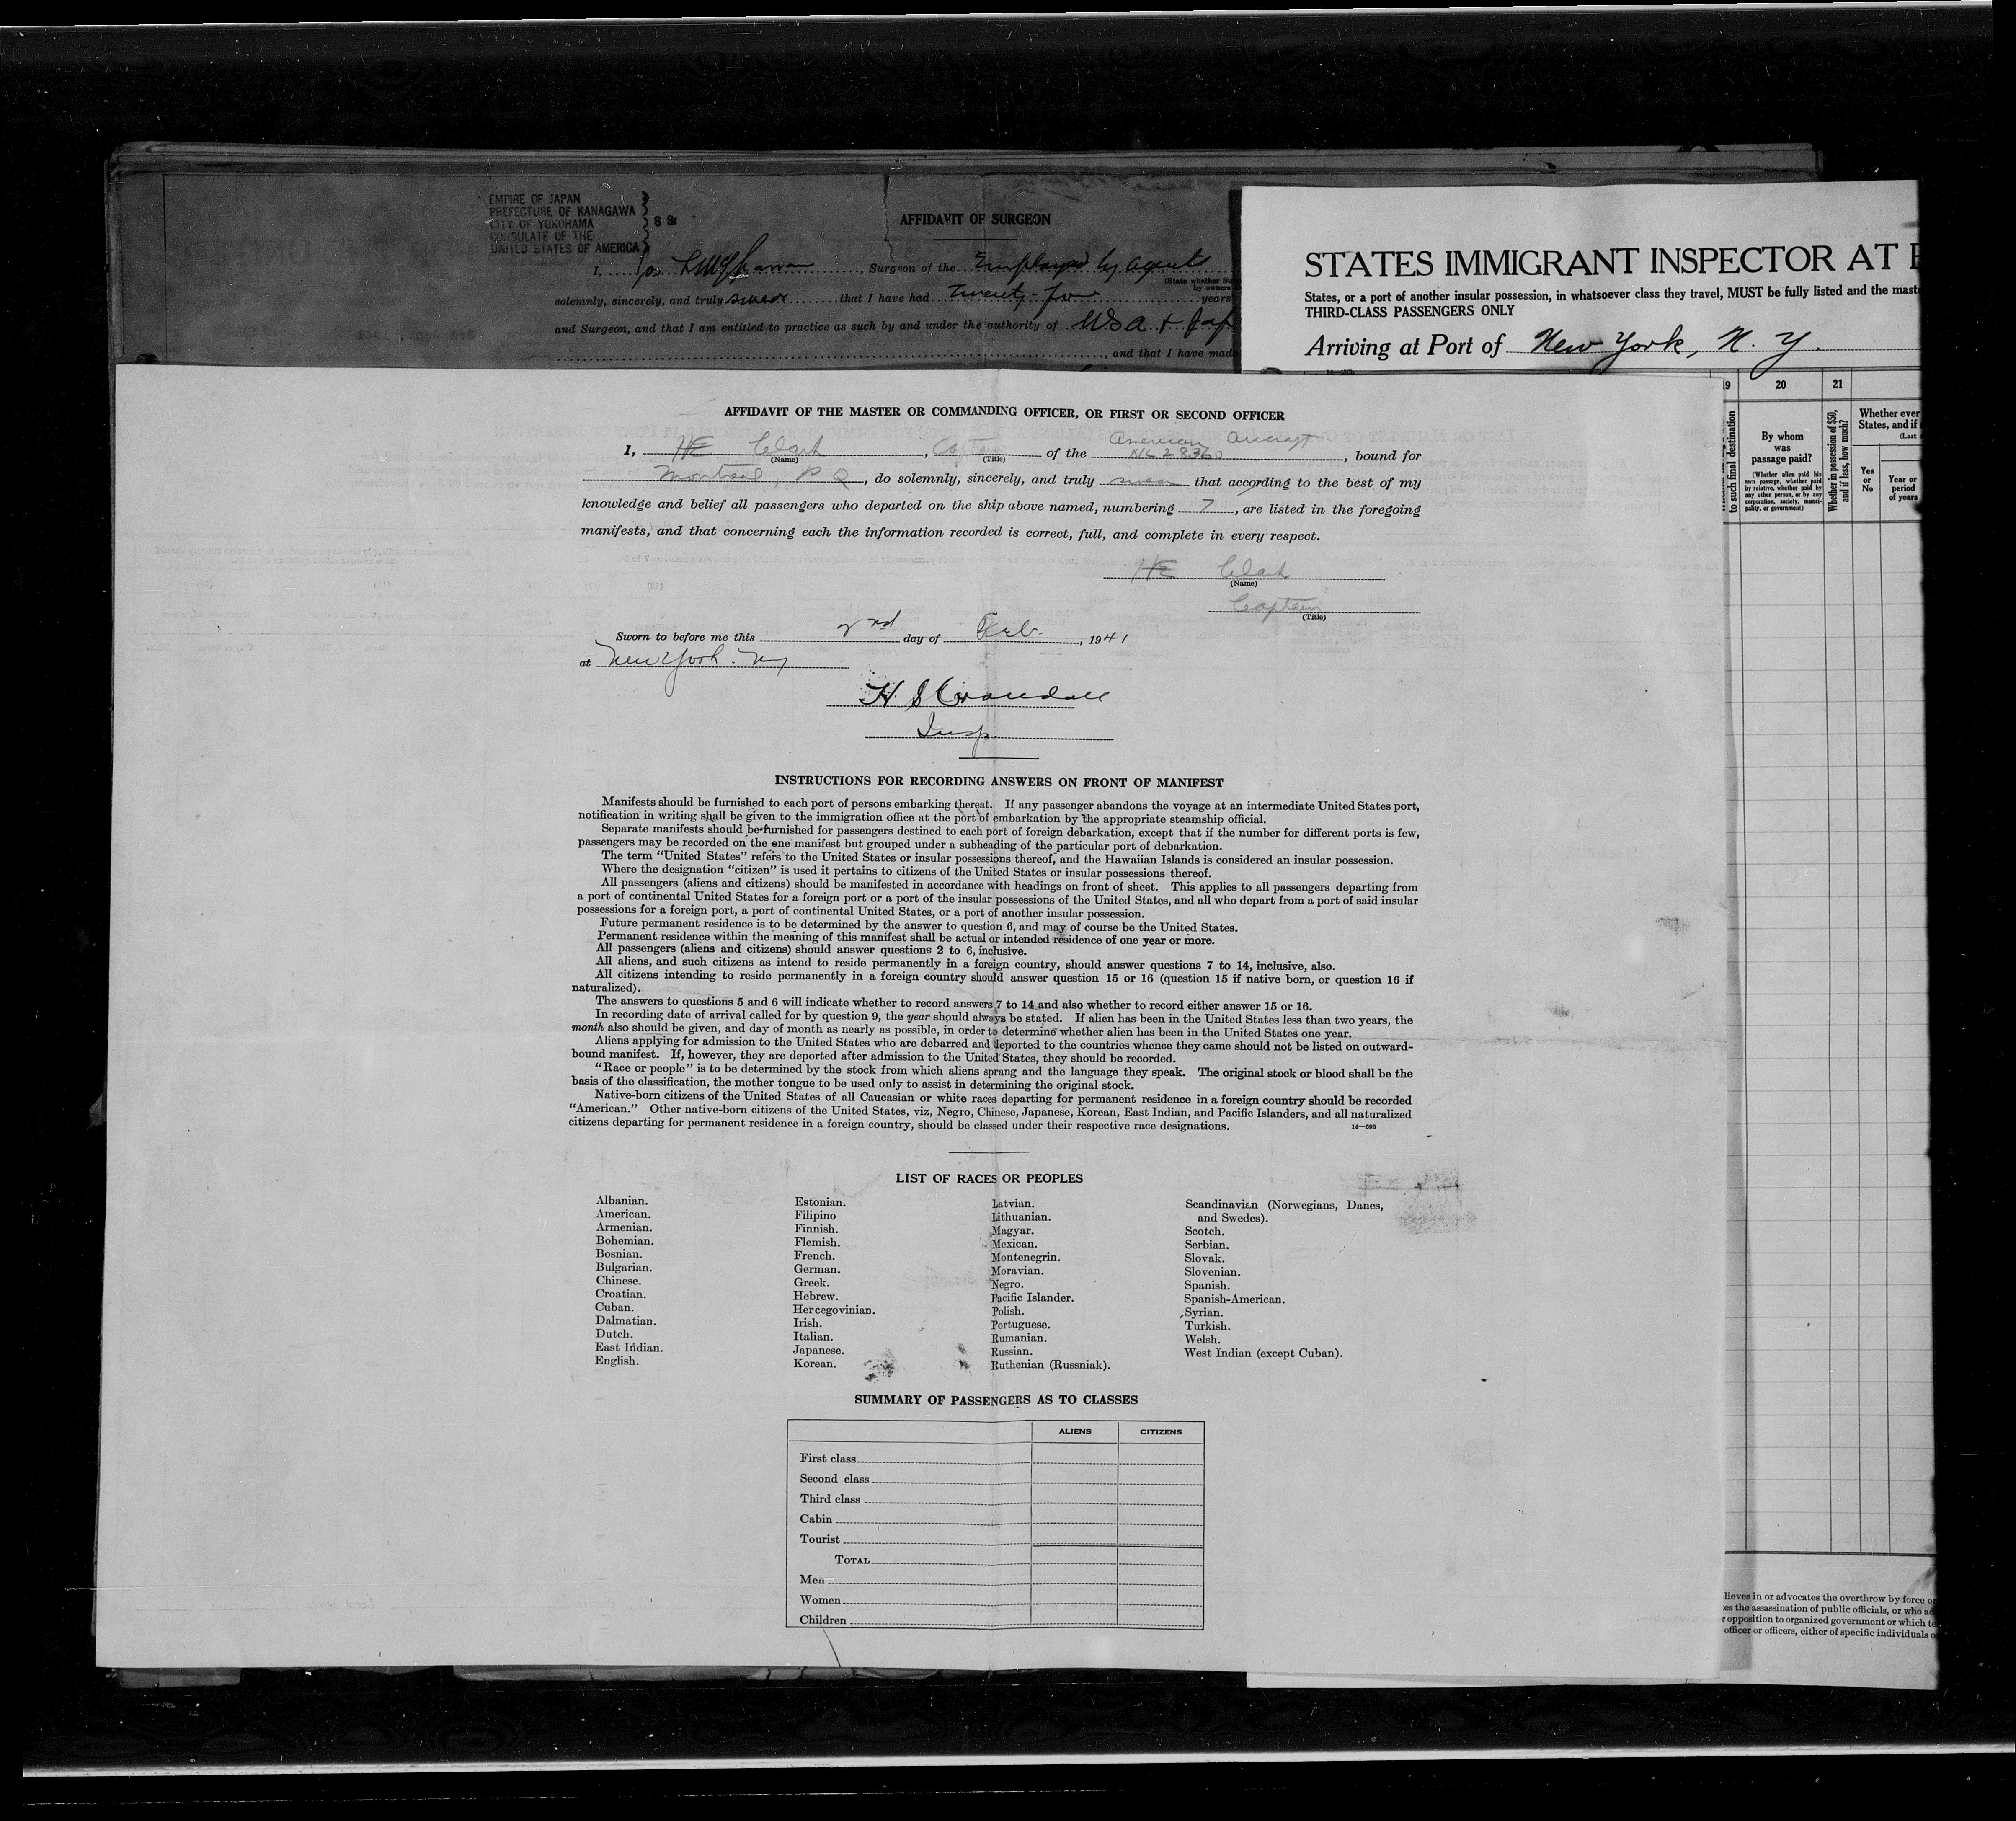 EMPIRE OF JAPAN
PREFECTURE OF KANAGAWA
CITY OF YOKOHAMA
CONSULATE OF THE
UNITED STATES OF AMERICA
S S:
AFFIDAVIT OF SURGEON
I, , Surgeon of the Employed by Agents
(State whether
by owners
solemnly, sincerely, and truly swear that I have had Twenty- years
and Surgeon, and that I am entitled to practice as such by and under the authority of USA + Jap
, and that I have made
STATES IMMIGRANT INSPECTOR AT
States, or a port of another insular possession, in whatsoever class they travel, MUST be fully listed and the mast
THIRD-CLASS PASSENGERS ONLY
Arriving at Port of New York, N. Y.
19 20 21
to such final destination
By whom
was
passage paid?
(Whether alien paid his
own passage, whether paid
by relative, whether paid by
any other person, or by any
corporation, society, munici-
pality, or government)
Whether in possession of $50,
and if less, how much?
Whether ever
States, and if
(Last
Yes
or
No
Year or
period
of years
AFFIDAVIT OF THE MASTER OR COMMANDING OFFICER, OR FIRST OR SECOND OFFICER
American Aircraft
I, HE Clark, Captain of the NC 28360, bound for
(Name) (Title)
Montreal, P Q, do solemnly, sincerely, and truly swear that according to the best of my
knowledge and belief all passengers who departed on the ship above named, numbering 7, are listed in the foregoing
manifests, and that concerning each the information recorded is correct, full, and complete in every respect.
HE Clark
(Name)
Captain
(Title)
Sworn to before me this 2nd day of Feb., 1941
at New York. NY
H S Crandall
Insp.
INSTRUCTIONS FOR RECORDING ANSWERS ON FRONT OF MANIFEST
Manifests should be furnished to each port of persons embarking thereat. If any passenger abandons the voyage at an intermediate United States port,
notification in writing shall be given to the immigration office at the port of embarkation by the appropriate steamship official.
Separate manifests should be furnished for passengers destined to each port of foreign debarkation, except that if the number for different ports is few,
passengers may be recorded on the one manifest but grouped under a subheading of the particular port of debarkation.
The term "United States" refers to the United States or insular possessions thereof, and the Hawaiian Islands is considered an insular possession.
Where the designation "citizen" is used it pertains to citizens of the United States or insular possessions thereof.
All passengers (aliens and citizens) should be manifested in accordance with headings on front of sheet. This applies to all passengers departing from
a port of continental United States for a foreign port or a port of the insular possessions of the United States, and all who depart from a port of said insular
possessions for a foreign port, a port of continental United States, or a port of another insular possession.
Future permanent residence is to be determined by the answer to question 6, and may of course be the United States.
Permanent residence within the meaning of this manifest shall be actual or intended residence of one year or more.
All passengers (aliens and citizens) should answer questions 2 to 6, inclusive.
All aliens, and such citizens as intend to reside permanently in a foreign country, should answer questions 7 to 14, inclusive, also.
All citizens intending to reside permanently in a foreign country should answer question 15 or 16 (question 15 if native born, or question 16 if
naturalized).
The answers to questions 5 and 6 will indicate whether to record answers 7 to 14 and also whether to record either answer 15 or 16.
In recording date of arrival called for by question 9, the year should always be stated. If alien has been in the United States less than two years, the
month also should be given, and day of month as nearly as possible, in order to determine whether alien has been in the United States one year.
Aliens applying for admission to the United States who are debarred and deported to the countries whence they came should not be listed on outward-
bound manifest. If, however, they are deported after admission to the United States, they should be recorded.
"Race or people" is to be determined by the stock from which aliens sprang and the language they speak. The original stock or blood shall be the
basis of the classification, the mother tongue to be used only to assist in determining the original stock.
Native-born citizens of the United States of all Caucasian or white races departing for permanent residence in a foreign country should be recorded
"American." Other native-born citizens of the United States, viz, Negro, Chinese, Japanese, Korean, East Indian, and Pacific Islanders, and all naturalized
citizens departing for permanent residence in a foreign country, should be classed under their respective race designations.
14—595
LIST OF RACES OR PEOPLES
Albanian.
American.
Armenian.
Bohemian.
Bosnian.
Bulgarian.
Chinese.
Croatian.
Cuban.
Dalmatian.
Dutch.
East Indian.
English.
Estonian.
Filipino
Finnish.
Flemish.
French.
German.
Greek.
Hebrew.
Hercegovinian.
Irish.
Italian.
Japanese.
Korean.
Latvian.
Lithuanian.
Magyar.
Mexican.
Montenegrin.
Moravian.
Negro.
Pacific Islander.
Polish.
Portuguese.
Rumanian.
Russian.
Ruthenian (Russniak).
Scandinavian (Norwegians, Danes,
and Swedes).
Scotch.
Serbian.
Slovak.
Slovenian.
Spanish.
Spanish-American.
Syrian.
Turkish.
Welsh.
West Indian (except Cuban).
SUMMARY OF PASSENGERS AS TO CLASSES
ALIENS CITIZENS
First class
Second class
Third class
Cabin
Tourist
TOTAL
Men
Women
Children
lieves in or advocates the overthrow by force or
es the assassination of public officials, or who ad
r opposition to organized government or which te
officer or officers, either of specific individuals o